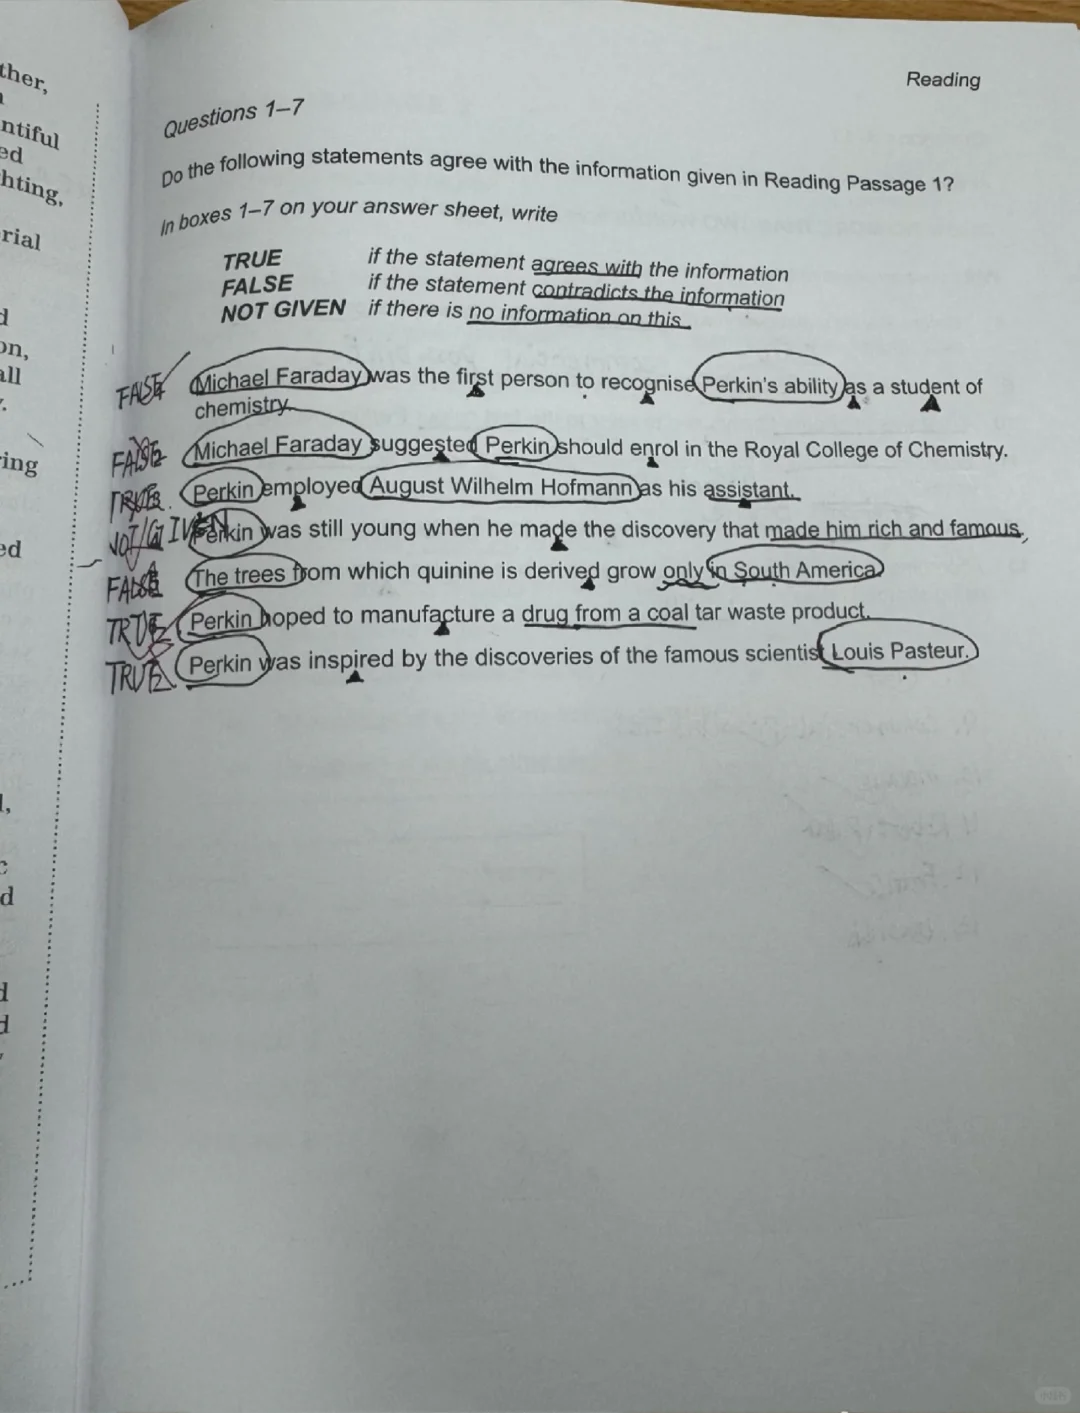 ther,
ntiful
ed
hting,
rial
d
on,
all
ring
ed
d
d
d
Reading
Questions 1–7
Do the following statements agree with the information given in Reading Passage 1?
In boxes 1–7 on your answer sheet, write
TRUE if the statement agrees with the information
FALSE if the statement contradicts the information
NOT GIVEN if there is no information on this
FALSE Michael Faraday was the first person to recognise Perkin's ability as a student of
chemistry.
FALSE Michael Faraday suggested Perkin should enrol in the Royal College of Chemistry.
TRUE Perkin employed August Wilhelm Hofmann as his assistant.
NOT GIVEN Perkin was still young when he made the discovery that made him rich and famous.
FALSE The trees from which quinine is derived grow only in South America.
TRUE Perkin hoped to manufacture a drug from a coal tar waste product.
TRUE Perkin was inspired by the discoveries of the famous scientist Louis Pasteur.